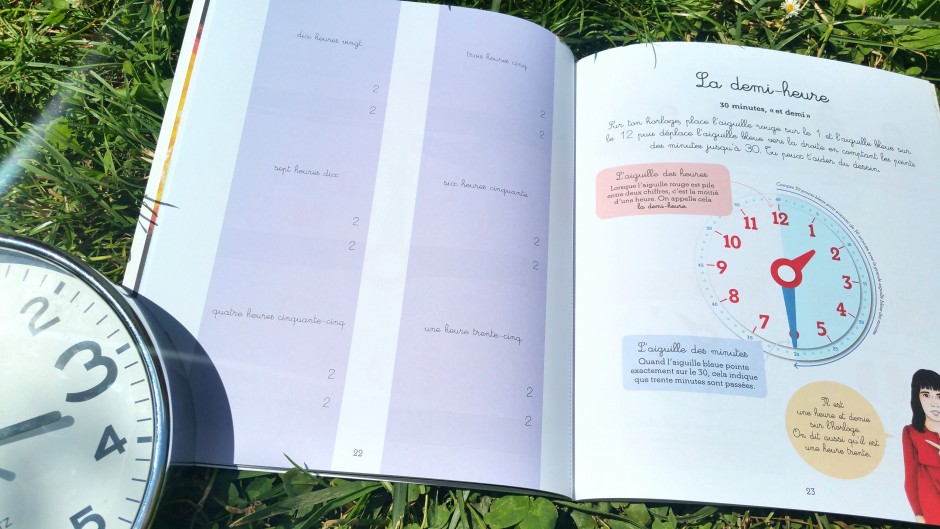 dix heures vingt
2
2
trois heures cinq
2
2
sept heures dix
2
2
six heures cinquante
2
2
quatre heures cinquante-cinq
2
2
une heure trente-cinq
2
2
22
La demi-heure
30 minutes, « et demi »
Sur ton horloge, place l'aiguille rouge sur le 1 et l'aiguille bleue sur
le 12 puis déplace l'aiguille bleue vers la droite en comptant les points
des minutes jusqu'à 30. Tu peux t'aider du dessin.
L'aiguille des heures
Lorsque l'aiguille rouge est pile
entre deux chiffres, c'est la moitié
d'une heure. On appelle cela
la demi-heure.
12
1
2
3
4
5
7
8
9
10
11
L'aiguille des minutes
Quand l'aiguille bleue pointe
exactement sur le 30, cela indique
que trente minutes sont passées.
Il est
une heure et demie
sur l'horloge.
On dit aussi qu'il est
une heure trente.
23
2
3
4
5